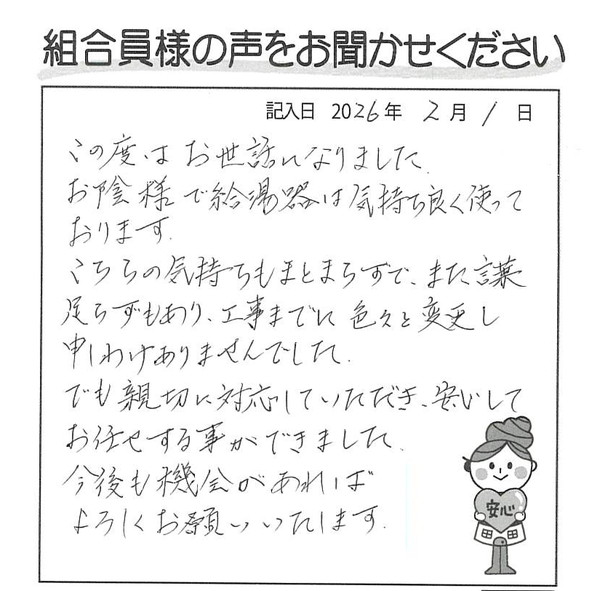 組合員様の声をお聞かせください
記入日 2026年 2月 1日
この度は お世話になりました.
お陰様で給湯器は気持ち良く使って
おります.
こちらの気持ちもまとまらずで、また言葉
足らずもあり、工事までに 色々と変更し
申しわけありませんでした.
でも親切に対応していただき、安心して
お任せする事ができました.
今後も機会があれば
よろしくお願いいたします.
安心